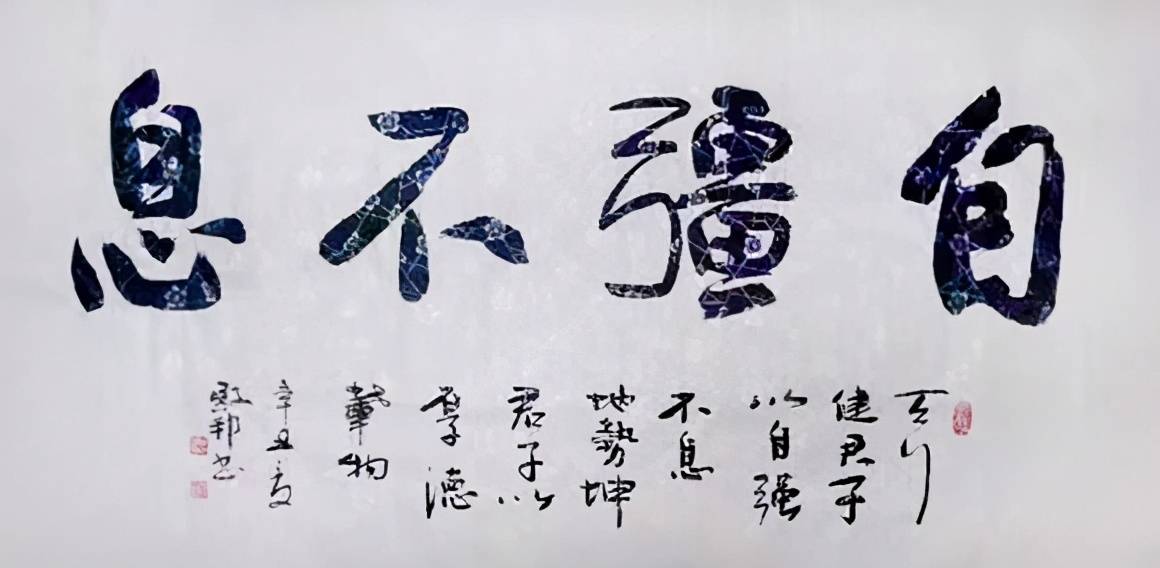 自彊不息
天行
健君子
以自强
不息
地勢坤
君子以
厚德
載物
辛丑夏
邦书